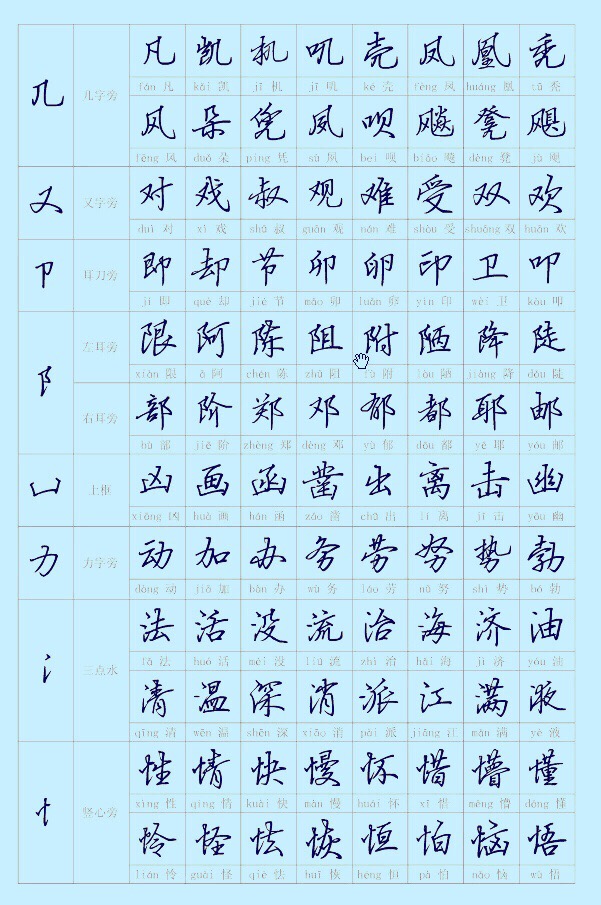 几 几字旁
凡 凯 机 叽 壳 凤 凰 秃
fán 凡 kǎi 凯 jī 机 jī 叽 ké 壳 fèng 凤 huáng 凰 tū 秃
风 朵 凭 夙 呗 飚 凳 飓
fēng 风 duǒ 朵 píng 凭 sù 夙 bei 呗 biāo 飚 dèng 凳 jù 飓
又 又字旁
对 戏 叔 观 难 受 双 欢
duì 对 xì 戏 shū 叔 guān 观 nán 难 shòu 受 shuāng 双 huān 欢
卩 耳刀旁
即 却 节 卯 卵 印 卫 叩
jí 即 què 却 jié 节 mǎo 卯 luǎn 卵 yìn 印 wèi 卫 kòu 叩
阝 左耳旁
限 阿 陈 阻 附 陋 降 陡
xiàn 限 ā 阿 chén 陈 zhǔ 阻 fù 附 lòu 陋 jiàng 降 dǒu 陡
右耳旁
部 阶 郑 邓 郁 都 耶 邮
bù 部 jiē 阶 zhèng 郑 dèng 邓 yù 郁 dōu 都 yē 耶 yóu 邮
凵 上框
凶 画 函 凿 出 离 击 幽
xiōng 凶 huà 画 hán 函 záo 凿 chū 出 lí 离 jī 击 yōu 幽
力 力字旁
动 加 办 务 劳 努 势 勃
dòng 动 jiā 加 bàn 办 wù 务 láo 劳 nǔ 努 shì 势 bó 勃
氵 三点水
法 活 没 流 治 海 济 油
fǎ 法 huó 活 méi 没 liú 流 zhì 治 hǎi 海 jì 济 yóu 油
清 温 深 消 派 江 满 液
qīng 清 wēn 温 shēn 深 xiāo 消 pài 派 jiāng 江 mǎn 满 yè 液
忄 竖心旁
性 情 快 慢 怀 惜 懵 懂
xìng 性 qíng 情 kuài 快 màn 慢 huái 怀 xī 惜 měng 懵 dǒng 懂
怜 怪 怯 恢 恒 怕 恼 悟
lián 怜 guài 怪 qiè 怯 huī 恢 héng 恒 pà 怕 nǎo 恼 wù 悟